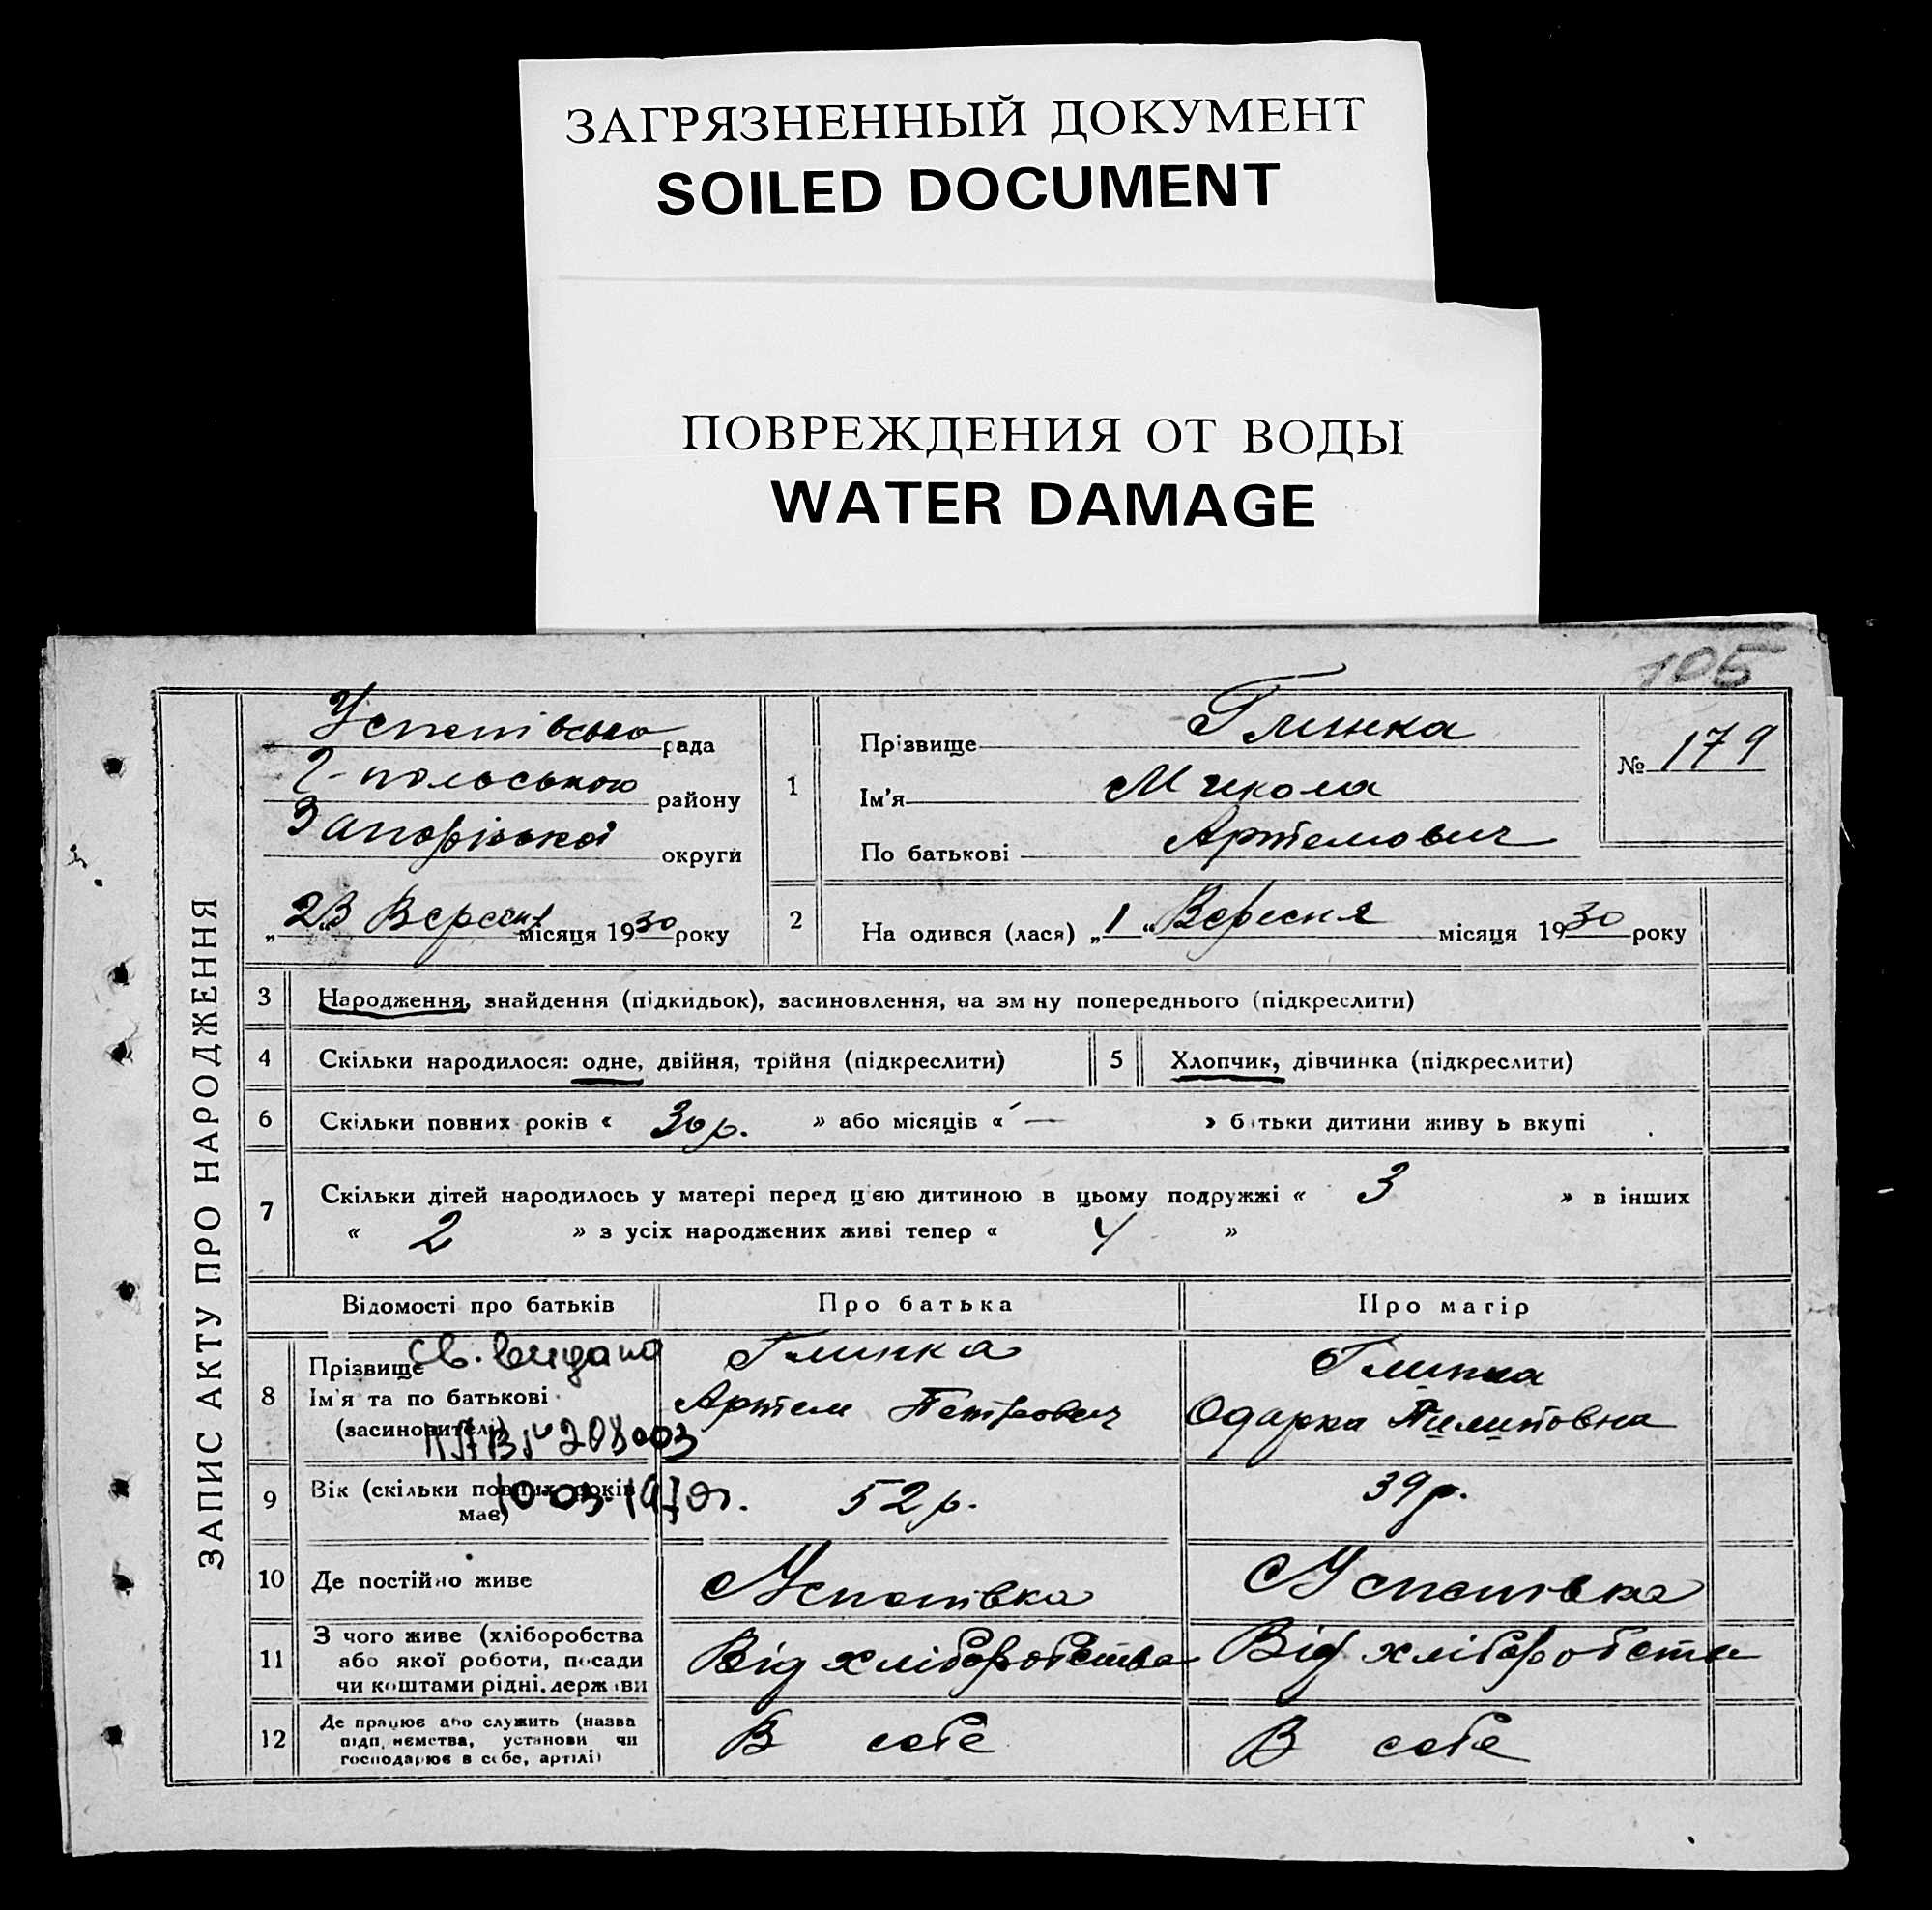 ЗАГРЯЗНЕННЫЙ ДОКУМЕНТ
SOILED DOCUMENT
ПОВРЕЖДЕНИЯ ОТ ВОДЫ
WATER DAMAGE
105
ЗАПИС АКТУ ПРО НАРОДЖЕННЯ
рада
Г-польського району
Запорізької округи
„23 Вересня місяця 1930 року
1
Прізвище Глинка
Ім'я Микола
По батькові Артемович
№ 179
2 На одився (лася) „1" Вересня місяця 1930 року
3 Народження, знайдення (підкидьок), засиновлення, на зм ну попереднього (підкреслити)
4 Скільки народилося: одне, двійня, трійня (підкреслити)
5 Хлопчик, дівчинка (підкреслити)
6 Скільки повних років « 30 р. » або місяців « — » б тьки дитини живу ь вкупі
7 Скільки дітей народилось у матері перед цєю дитиною в цьому подружжі « 3 » в інших
« 2 » з усіх народжених живі тепер « 4 »
Відомості про батьків
Про батька
Про матір
8 Прізвище
Ім'я та по батькові
(засиновителі)
Св. видана
№ 208003
Глинка
Артем Петрович
Глинка
Одарка Пилиповна
9 Вік (скільки повних років
має)
52 р.
39 р.
10 Де постійно живе
11 З чого живе (хліборобства
або якої роботи, посади
чи коштами рідні, держ ви
Від хліборобства
Від хліборобства
12 Де працює або служить (назва
підп, иємства, установи чи
господарює в себе, артілі)
В себе
В себе